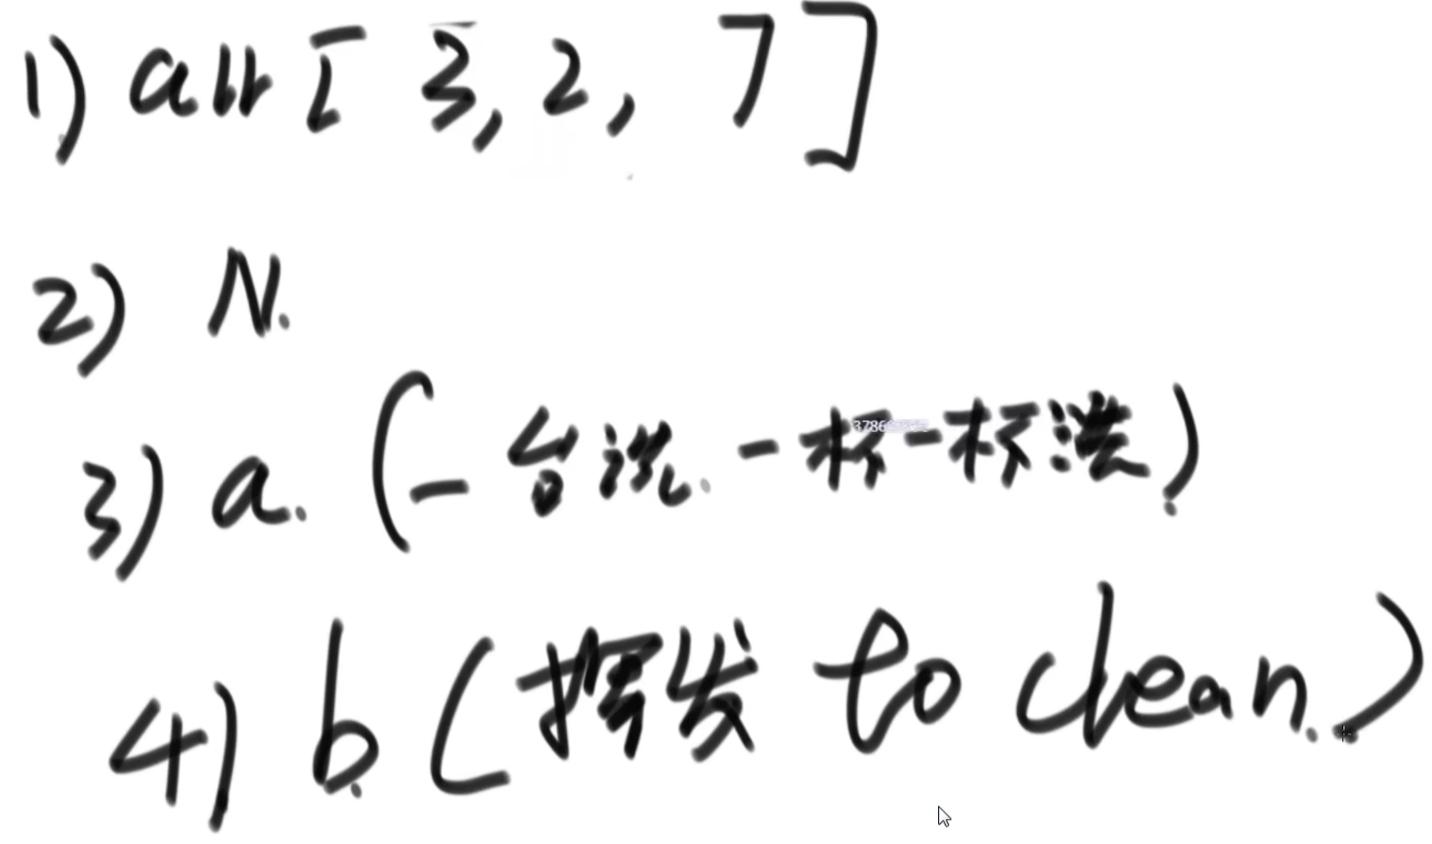 1) arr [ 3, 2, 7 ]
2) N.
3) a. (一台洗. 一杯一杯洗)
4) b. (挥发 to clean.)